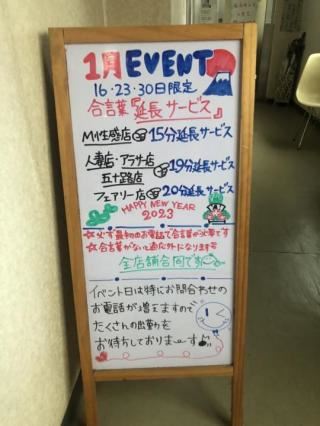 1月EVENT
16・23・30日限定
合言葉『延長サービス』
M性感店 15分延長サービス
人妻店・アラサー店
五十路店 19分延長サービス
フェアリー店 20分延長サービス
HAPPY NEW YEAR
2023
☆必ず最初のお電話で合言葉が必要です
☆合言葉がないと適応外になります
全店舗合同です
イベント日は特にお問合わせの
お電話が増えますので
たくさんの出勤を
お待ちしておりまーす♪